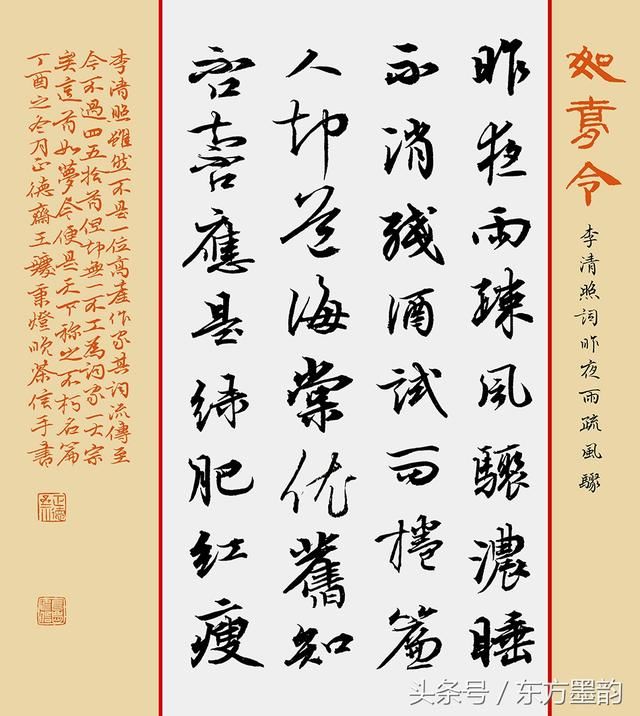 如夢令
李清照詞昨夜雨疏風驟
昨夜雨疎風驟濃睡
不消殘酒試問捲簾
人却道海棠依舊知
否知否應是緑肥紅瘦
李清照雖然不是一位高產作家其詞流傳至
今不過四五拾首但却無一不工為詞家一大宗
矣這首如夢令便是天下稱之不朽名篇
丁酉之冬月正德齋王驥秉燈晚茶信手書
头条号／东方墨韵